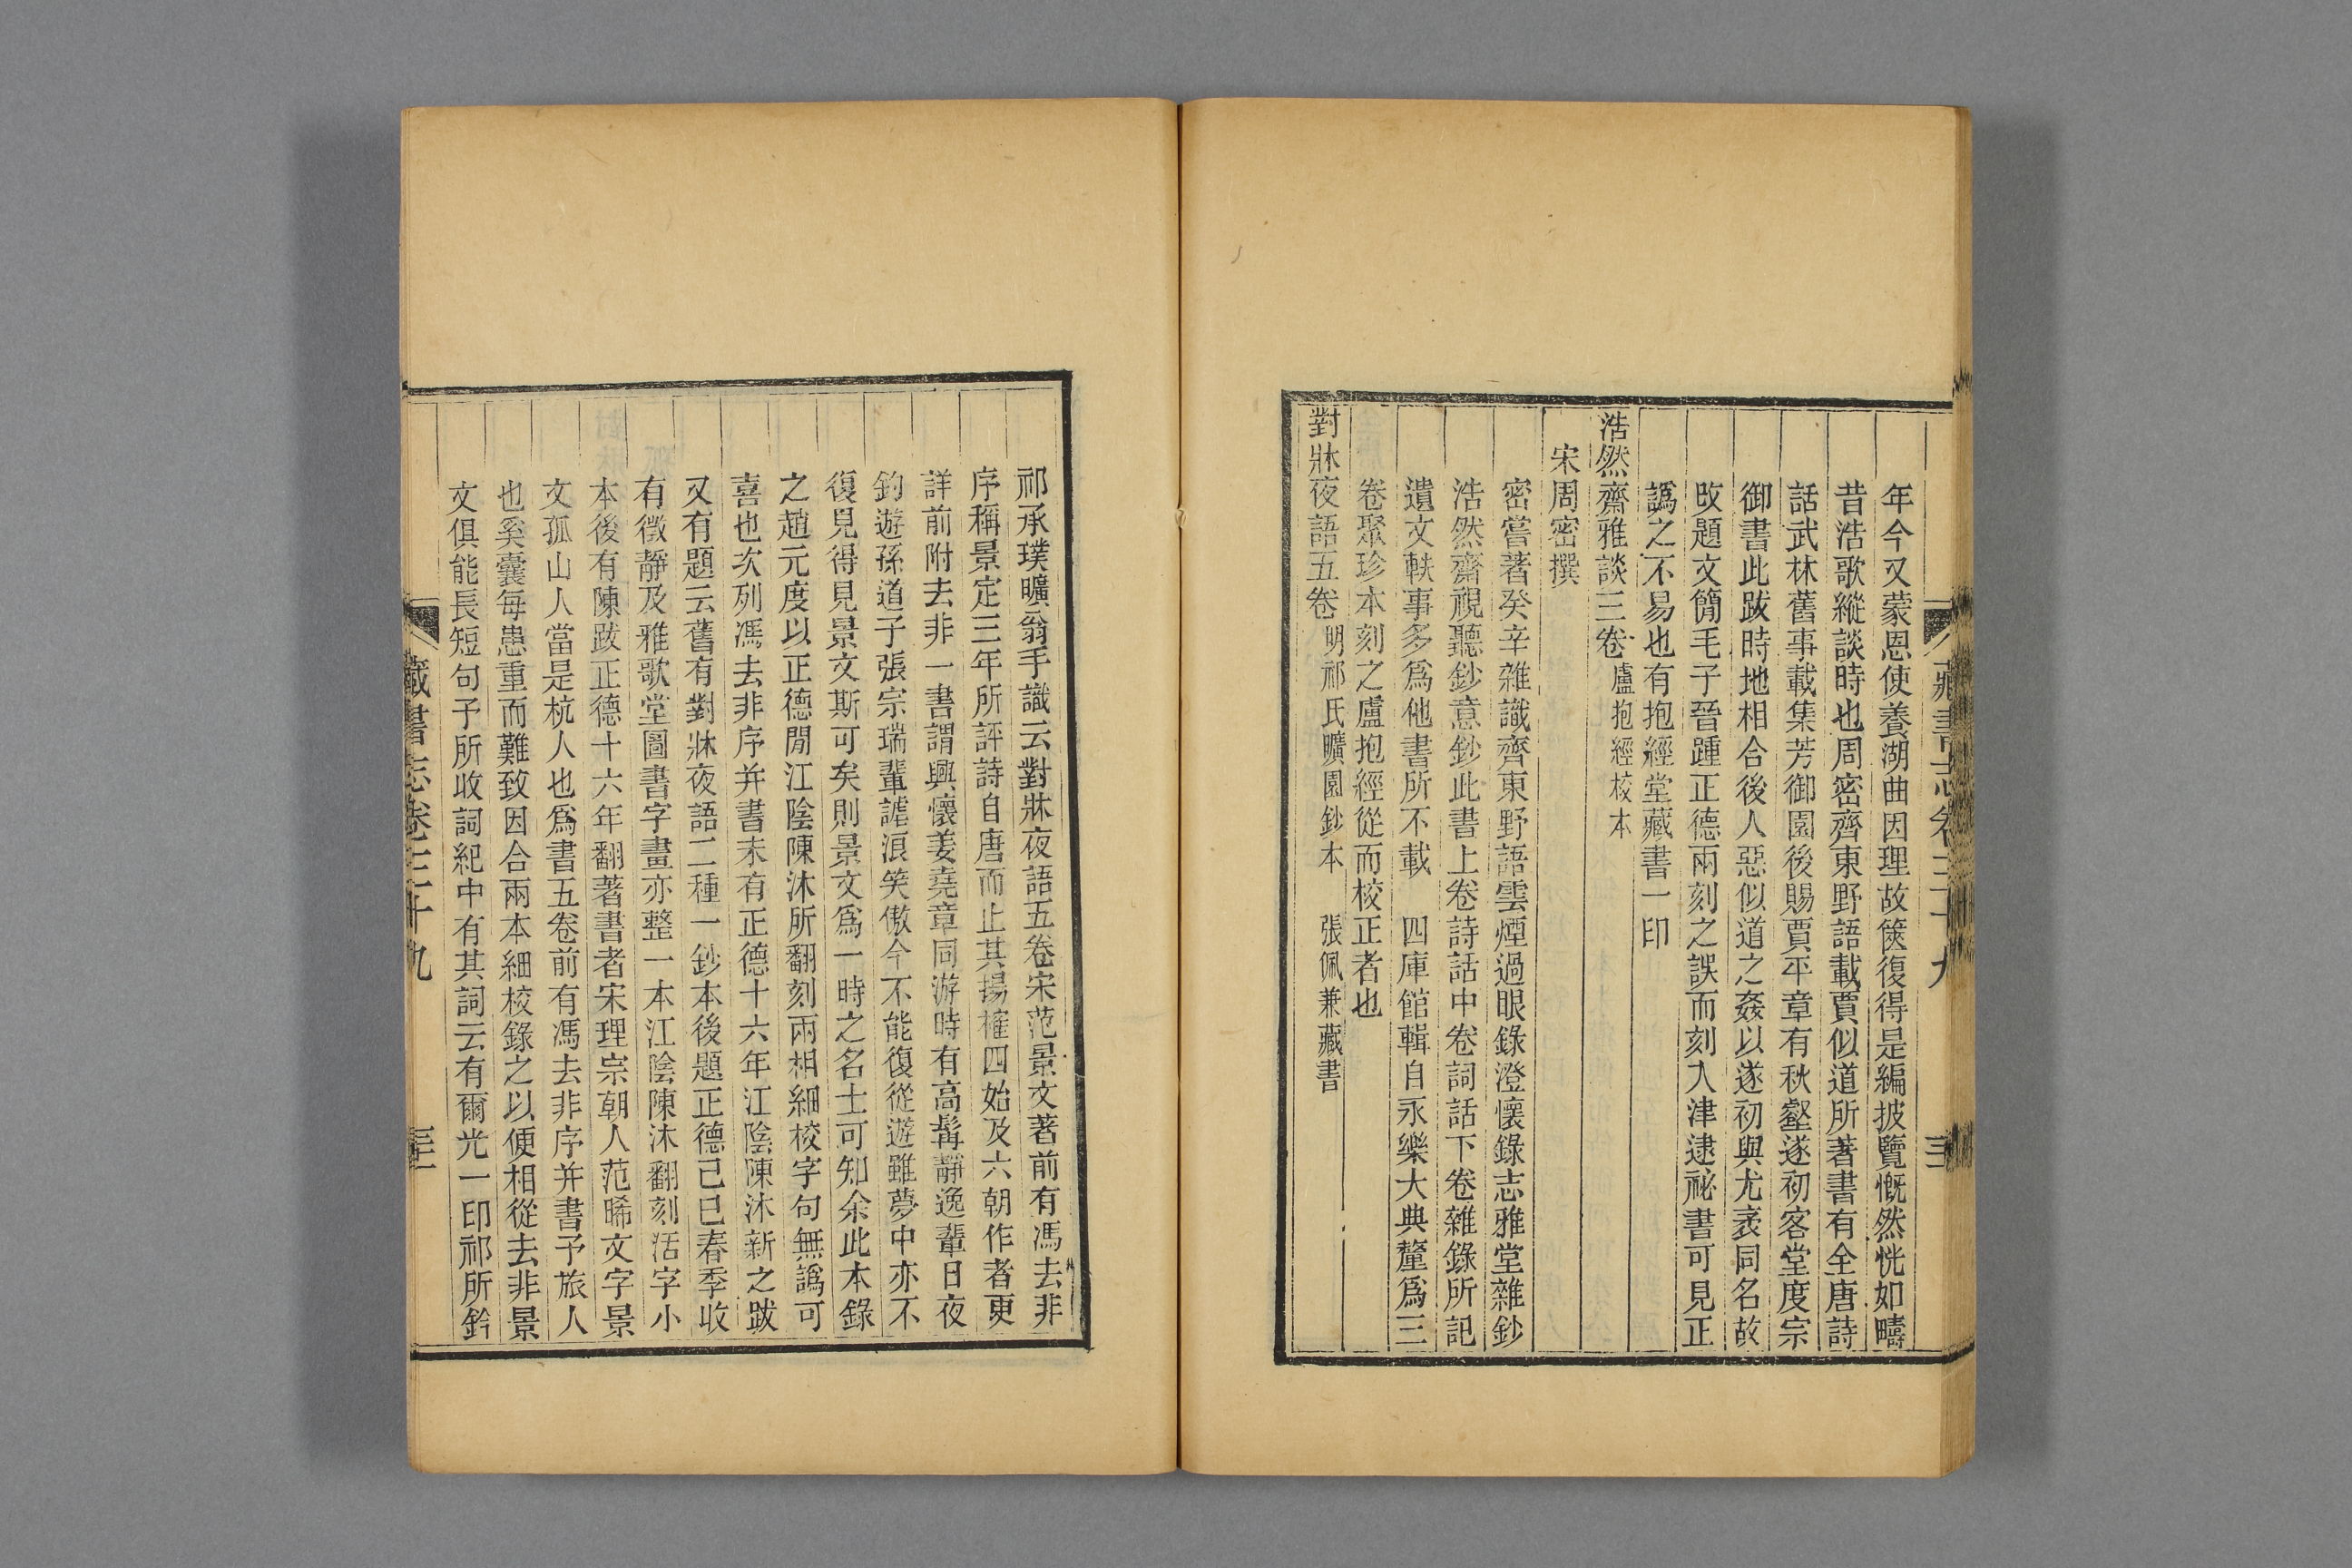 年今又蒙恩使養湖曲因理故篋復得是編披覽慨然恍如疇
昔浩歌縱談時也周密齊東野語載賈似道所著書有全唐詩
話武林舊事載集芳御園後賜賈平章有秋壑遂初客堂度宗
御書此跋時地相合後人惡似道之姦以遂初與尤袤同名故
攺題文簡毛子晉踵正德兩刻之誤而刻入津逮祕書可見正
譌之不易也有抱經堂藏書一印
浩然齋雅談三卷 盧抱經校本
宋周密撰
密嘗著癸辛雜識齊東野語雲煙過眼錄澄懷錄志雅堂雜鈔
浩然齋視聽鈔意鈔此書上卷詩話中卷詞話下卷雜錄所記
遺文軼事多爲他書所不載 四庫館輯自永樂大典釐爲三
卷聚珍本刻之盧抱經從而校正者也
對牀夜語五卷 明祁氏曠園鈔本 張佩兼藏書
藏書志卷三十九
祁承㸁曠翁手識云對牀夜語五卷宋范景文著前有馮去非
序稱景定三年所評詩自唐而止其揚搉四始及六朝作者更
詳前附去非一書謂興懷姜堯章同游時有高髯靜逸輩日夜
釣遊孫道子張宗瑞輩謔浪笑傲今不能復從遊雖夢中亦不
復見得見景文斯可矣則景文爲一時之名士可知余此本錄
之趙元度以正德閒江陰陳沐所翻刻兩相細校字句無譌可
喜也次列馮去非序并書末有正德十六年江陰陳沐新之跋
又有題云舊有對牀夜語二種一鈔本後題正德己巳春季收
有徵靜及雅歌堂圖書字畫亦整一本江陰陳沐翻刻活字小
本後有陳跋正德十六年翻著書者宋理宗朝人范晞文字景
文孤山人當是杭人也爲書五卷前有馮去非序并書予旅人
也奚囊每患重而難致因合兩本細校錄之以便相從去非景
文俱能長短句予所收詞紀中有其詞云有爾光一印祁所鈐
藏書志卷三十九